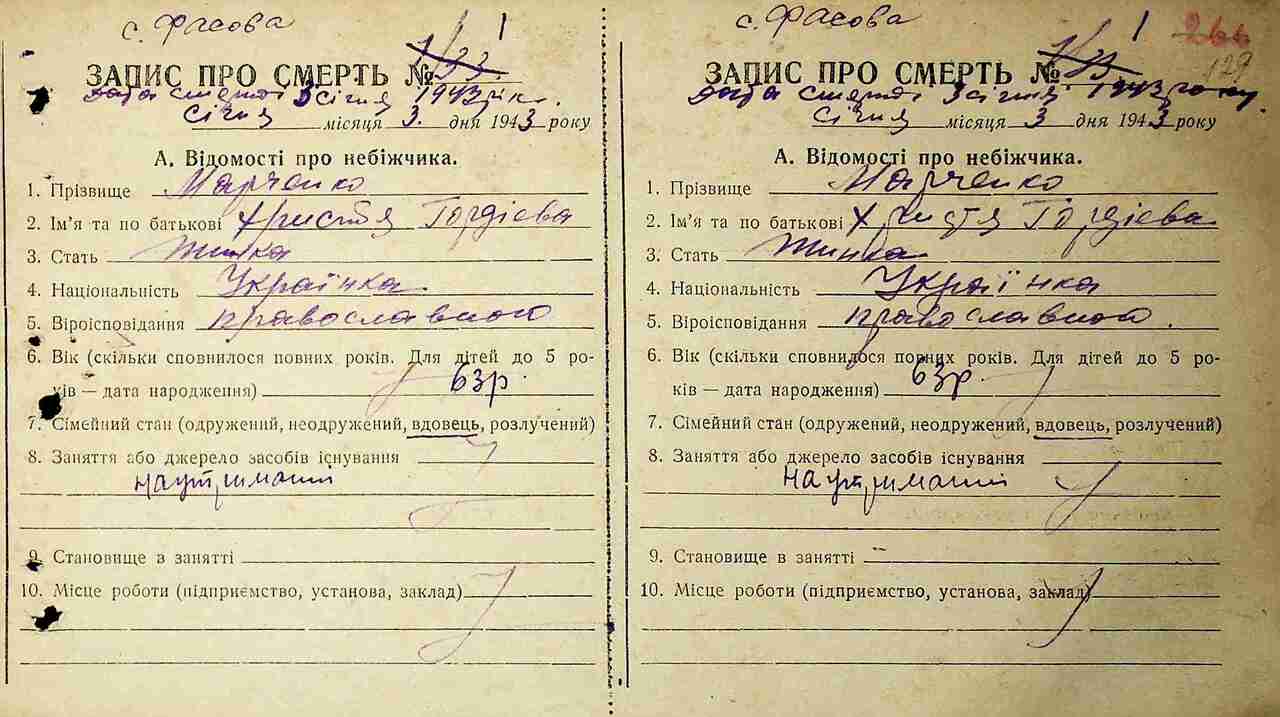 с. Фасова
1
ЗАПИС ПРО СМЕРТЬ №
Дата смерті 3 січня 1943 рік.
січня місяця 3. дня 1943 року
А. Відомості про небіжчика.
1. Прізвище Марченко
2. Ім'я та по батькові Христя Гордієва
3. Стать жинка
4. Національність Українка
5. Віроісповідання православного
6. Вік (скільки сповнилося повних років. Для дітей до 5 ро-
ків — дата народження) 63 р.
7. Сімейний стан (одружений, неодружений, вдовець, розлучений)
8. Заняття або джерело засобів існування
на утриманні
9. Становище в занятті
10. Місце роботи (підприємство, установа, заклад)
с. Фасова
1
266
129
ЗАПИС ПРО СМЕРТЬ №
Дата смерті 3 січня. 1943 року
січня місяця 3 дня 1943 року
А. Відомості про небіжчика.
1. Прізвище Марченко
2. Ім'я та по батькові Христя Гордієва
3. Стать жинка
4. Національність Українка
5. Віроісповідання православного.
6. Вік (скільки сповнилося повних років. Для дітей до 5 ро-
ків — дата народження) 63 р.
7. Сімейний стан (одружений, неодружений, вдовець, розлучений)
8. Заняття або джерело засобів існування
на утриманні
9. Становище в занятті
10. Місце роботи (підприємство, установа, заклад)